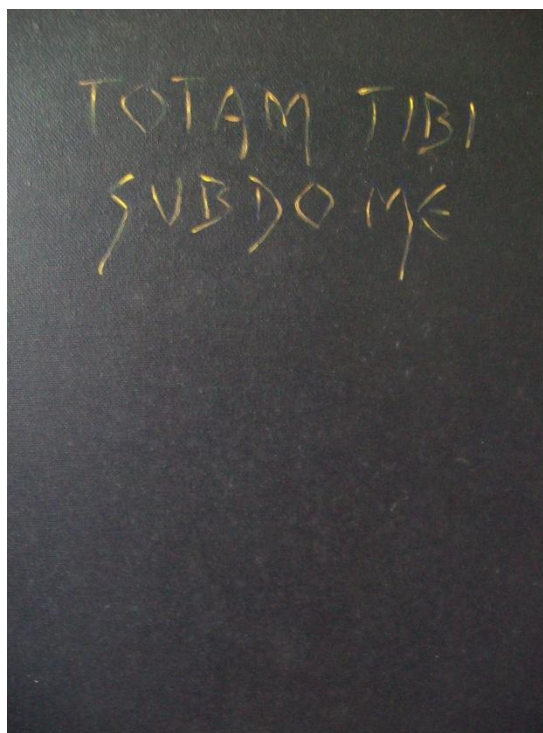 TOTAM TIBI
SUBDO ME